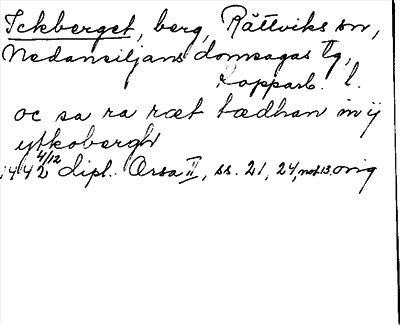 Ickberget, berg, Rättviks sn,
Nedansiljans domsagas tg,
Kopparb. l.
oc sa ra ræt tædhan in ij
ytkobergh
1442 4/12 Dipl. Orsa II, ss. 21, 24, not 13, orig